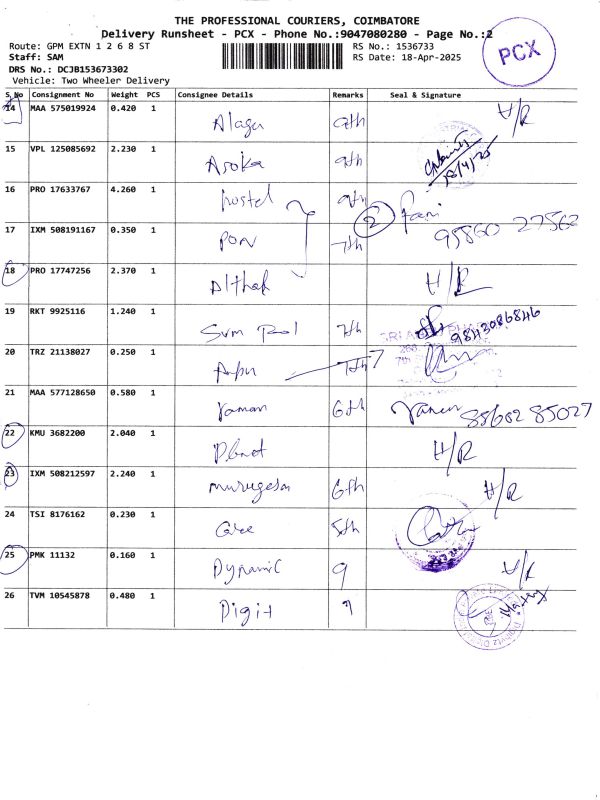 THE PROFESSIONAL COURIERS, COIMBATORE
Delivery Runsheet - PCX - Phone No.:9047080280 - Page No.:2
PCX
Route: GPM EXTN 1 2 6 8 ST RS No.: 1536733
Staff: SAM RS Date: 18-Apr-2025
DRS No.: DCJB153673302
Vehicle: Two Wheeler Delivery
S.No Consignment No Weight PCS Consignee Details Remarks Seal & Signature
14 MAA 575019924 0.420 1 Alagu 9th H/R
15 VPL 125085692 2.230 1 Asoka 9th 18/4/25
16 PRO 17633767 4.260 1 hostel 9th 2
17 IXM 508191167 0.350 1 7th
18 PRO 17747256 2.370 1 Althaf H/R
19 RKT 9925116 1.240 1 7th 9843086846
20 TRZ 21138027 0.250 1 7th
21 MAA 577128650 0.580 1 raman 6th 88602 85027
22 KMU 3682200 2.040 1 H/R
23 IXM 508212597 2.240 1 murugesan 6th H/R
24 TSI 8176162 0.230 1 5th
25 PMK 11132 0.160 1 Dynamic 9 H/R
26 TVM 10545878 0.480 1 Digit 9